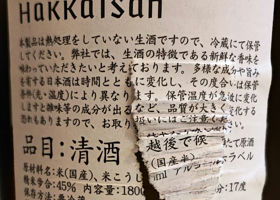 Hakkaisan
本製品は熱処理をしていない生酒ですので、冷蔵にて保管
してください。弊社では、生酒の特徴である新鮮な香味を
味わっていただきたいと考えております。多様な成分や旨み
を有する日本酒は時間とともに変化し、その度合いは保管
条件(光・温度)により異なります。保管温度が
しますと酸味等の成分が出るなど、品質が大きく変化する
恐れもありますので、お取り扱いにはご注意
品目:清酒
越後で候
原材料名:米(国産)、米こうじ(国産米)
精米歩合:45% 内容量:1800ml アルコール分:17度
て原酒
ラベル